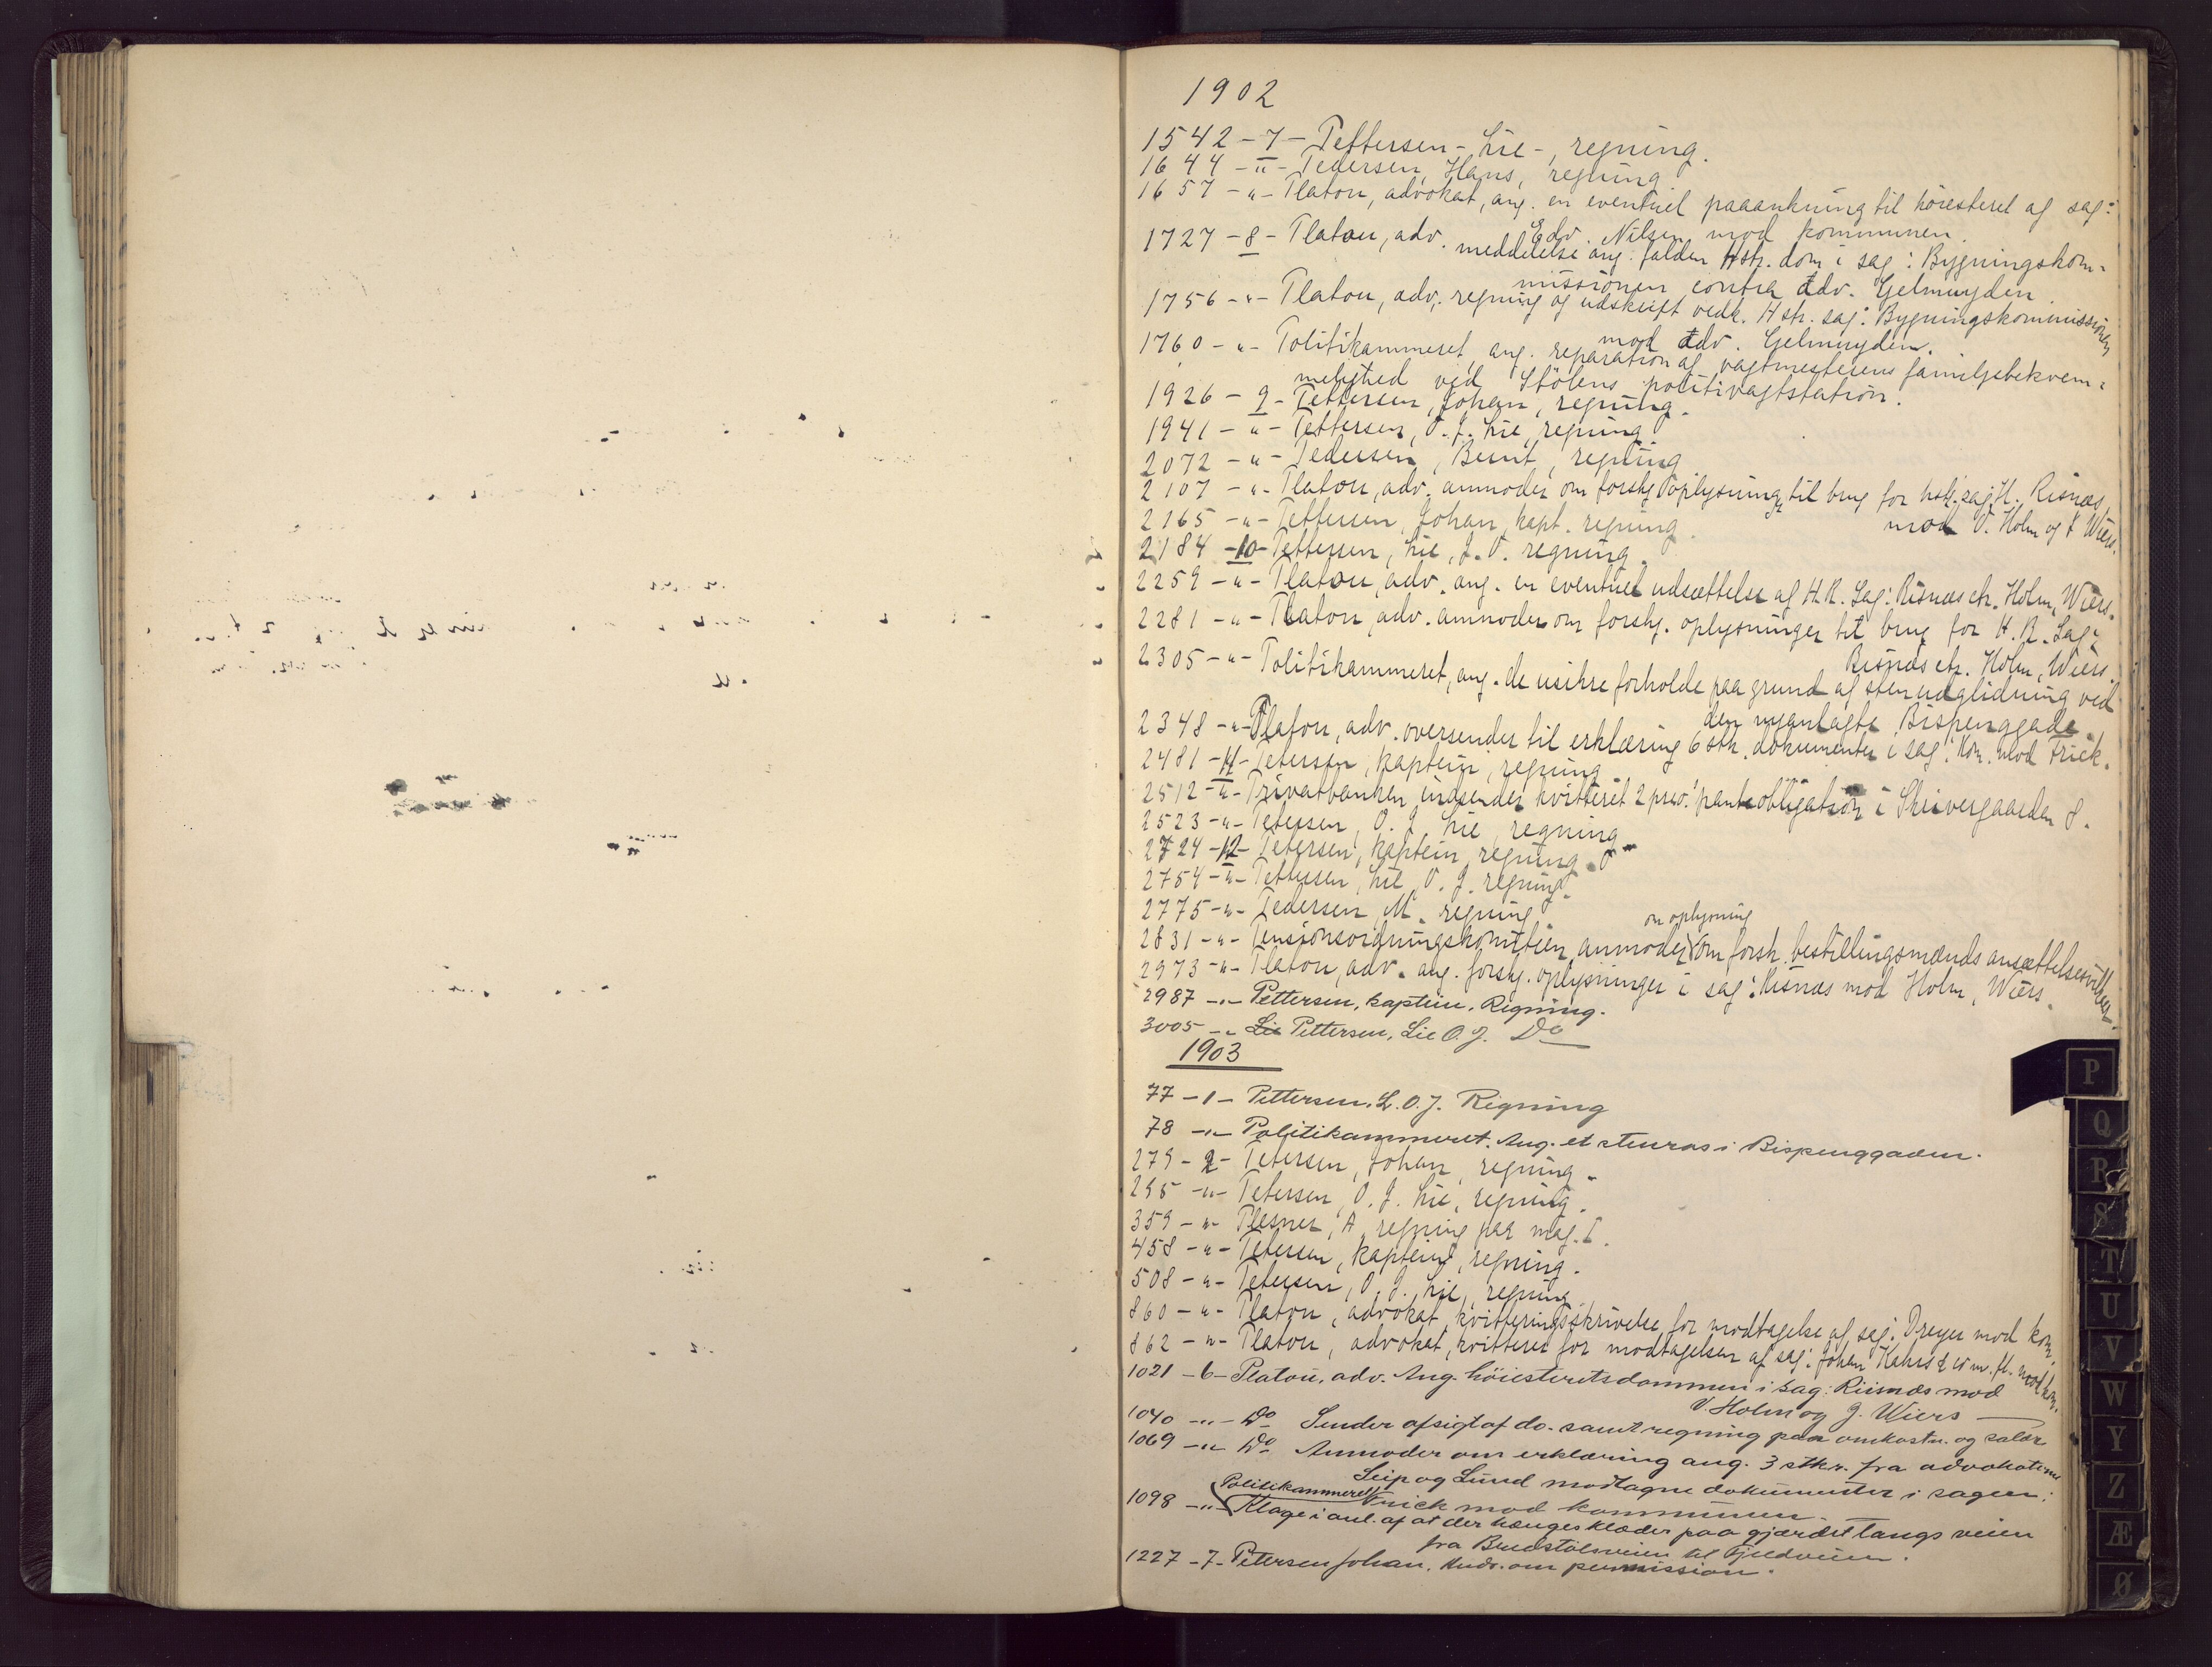 1902
1542 - 7 - Pettersen - Lie -, regning.
1644 - " - Pedersen, Hans, regning.
1657 - " - Platou, advokat, ang. en eventuel paaankning til höiesteret af sag:
Edv. Nilsen mod kommunen.
1727 - 8 - Platou, adv. meddelelse ang. falden Hstr. dom i sag: Bygningskom-
missionen contra adv. Gelmuyden.
1756 - " - Platou, adv, regning og udskrift vedk. Hstr. sag: Bygningskommissionen
mod adv. Gelmuyden.
1760 - " - Politikammeret, ang. reparation af vagtmesterens familjebekvem-
melighed ved Stölens politivagtstation.
1926 - 9 - Pettersen, Johan, regning.
1941 - " - Pettersen, O. J. Lie, regning.
2072 - " - Pedersen, Bernt, regning.
2107 - " - Platou, adv. anmoder om forskj. oplysninger til brug for hstr. sag H. Risnæs,
mod V. Holm og J Wiers.
2165 - " - Pettersen, Johan, kapt. regning.
2184 - 10 - Pettersen, Lie, J. O. regning.
2259 - " - Platou, adv. ang. en eventuel udsættelse af H. R. Sag: Risnæs ctr. Holm, Wiers.
2281 - " - Platou, adv. anmoder om forskj. oplysninger til brug for H. R. Sag:
Risnæs ctr. Holm, Wiers.
2305 - " - Politikammeret, ang. de usikre forholde paa grund af stenudglidning ved
den nyanlagte Bispenggade.
2348 - " - Platou, adv. oversender til erklæring 6 stk. dokumenter i sag: Kom. mod Frick.
2481 - 11 - Petersen, kaptein, regning.
2512 - " - Privatbanken indsender kvitteret 2 prio. panteobligation i Skrivergaarden 8.
2523 - " - Petersen, O. J. Lie, regning.
2724 - 12 - Petersen, kaptein, regning.
2754 - " - Pettersen, Lie, O. J. regning.
2775 - " - Pedersen, M. regning.
om oplysning
2831 - " - Pensionsordningskomiteen, anmoder om forsk. bestillingsmænds ansættelsesvilkaar.
2973 - " - Platou, adv. ang. forskj. oplysninger i sag: Risnæs mod Holm, Wiers.
2987 - " - Pettersen, kaptein. Regning.
3005 - " - Lie Pettersen, Lie O. J. Do
1903
77 - 1 - Pettersen, L. O. J. Regning
78 - " - Politikammeret. Ang. et stenras i Bispenggaden.
279 - 2 - Petersen, Johan, regning.
295 - " - Petersen, O. J. Lie, regning.
359 - " - Plesner, A, regning paa mag. I.
458 - " - Petersen, kaptein, regning.
508 - " - Petersen, O. J. Lie, regning.
860 - " - Platou, advokat, kvitteringsskrivelse for modtagelse af sag: Dreyer mod kom.
862 - " - Platou, advokat, kvitterer for modtagelsen af sag: Johan Kahrs m. fl. mod kom.
1021 - 6 - Platou, adv. Ang. höiesteretsdommen i sag: Riisnæs mod
V. Holm og J. Wiers
1040 - " - Do Sender afsigt af do. samt regning paa omkostn. og salær
1069 - " - Do Anmoder om erklæring ang. 3 stkr. fra advokaterne
Seip og Lund modtagne dokumenter i sagen:
Frick mod kommunen.
Politikammeret
1098 - " - Klage i anl. af at der hænges klæder paa gjærdet langs veien
fra Brudstolsveien til Fjeldveien.
1227 - 7 - Petersen Johan. Andr. om permission.
P
Q
R
S
T
U
V
W
Y
Z
Æ
Ø